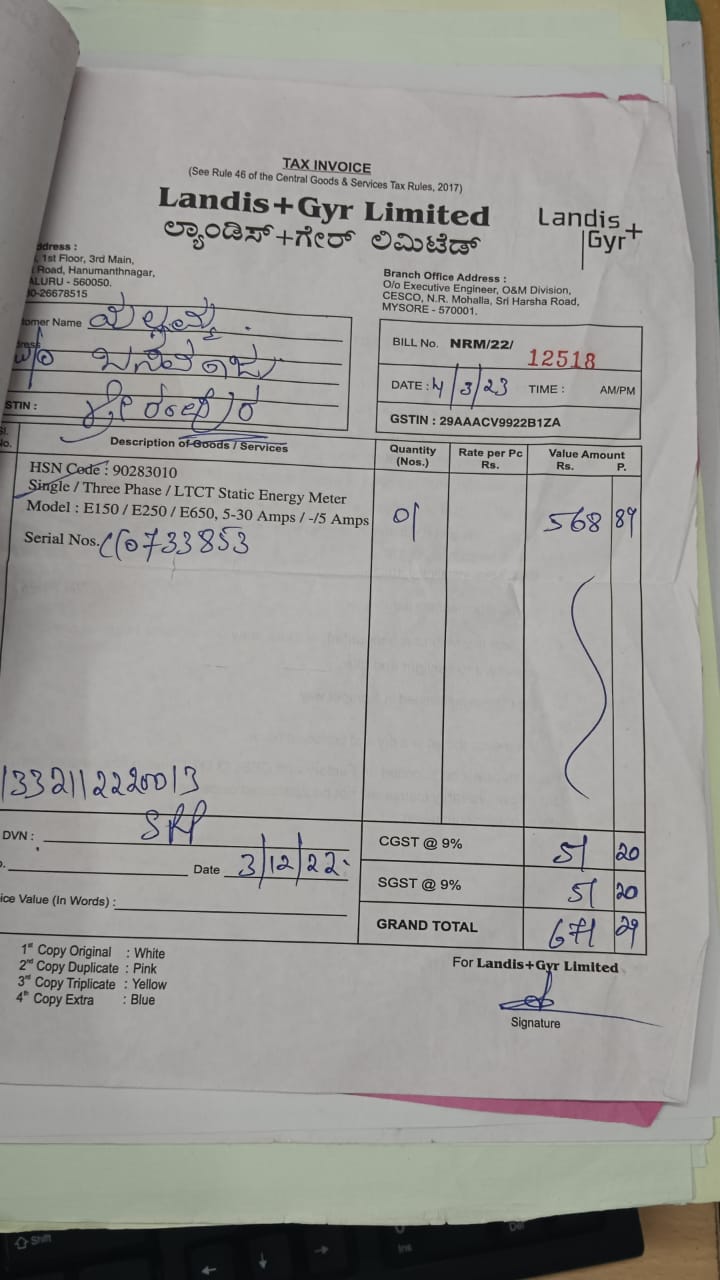 TAX INVOICE
(See Rule 46 of the Central Goods & Services Tax Rules, 2017)
Landis+Gyr Limited
ಲ್ಯಾಂಡಿಸ್+ಗೇರ್ ಲಿಮಿಟೆಡ್
Landis
Gyr+
ddress :
1st Floor, 3rd Main,
Road, Hanumanthnagar,
ALURU - 560050.
0-26678515
Branch Office Address :
O/o Executive Engineer, O&M Division,
CESCO, N.R. Mohalla, Sri Harsha Road,
MYSORE - 570001.
tomer Name
w/o
STIN :
BILL No. NRM/22/ 12518
DATE : 4/3/23 TIME : AM/PM
GSTIN : 29AAACV9922B1ZA
Sl. No. Description of Goods / Services Quantity (Nos.) Rate per Pc Rs. Value Amount Rs. P.
HSN Code : 90283010
Single / Three Phase / LTCT Static Energy Meter
Model : E150 / E250 / E650, 5-30 Amps / -/5 Amps 01 568 89
Serial Nos. 733853
1332112220013
DVN : SRP
Date 3/12/22
CGST @ 9% 51 20
SGST @ 9% 51 20
ice Value (In Words) :
GRAND TOTAL 671 29
1st Copy Original : White
2nd Copy Duplicate : Pink
3rd Copy Triplicate : Yellow
4th Copy Extra : Blue
For Landis+Gyr Limited
Signature
Shift
Ins
Del